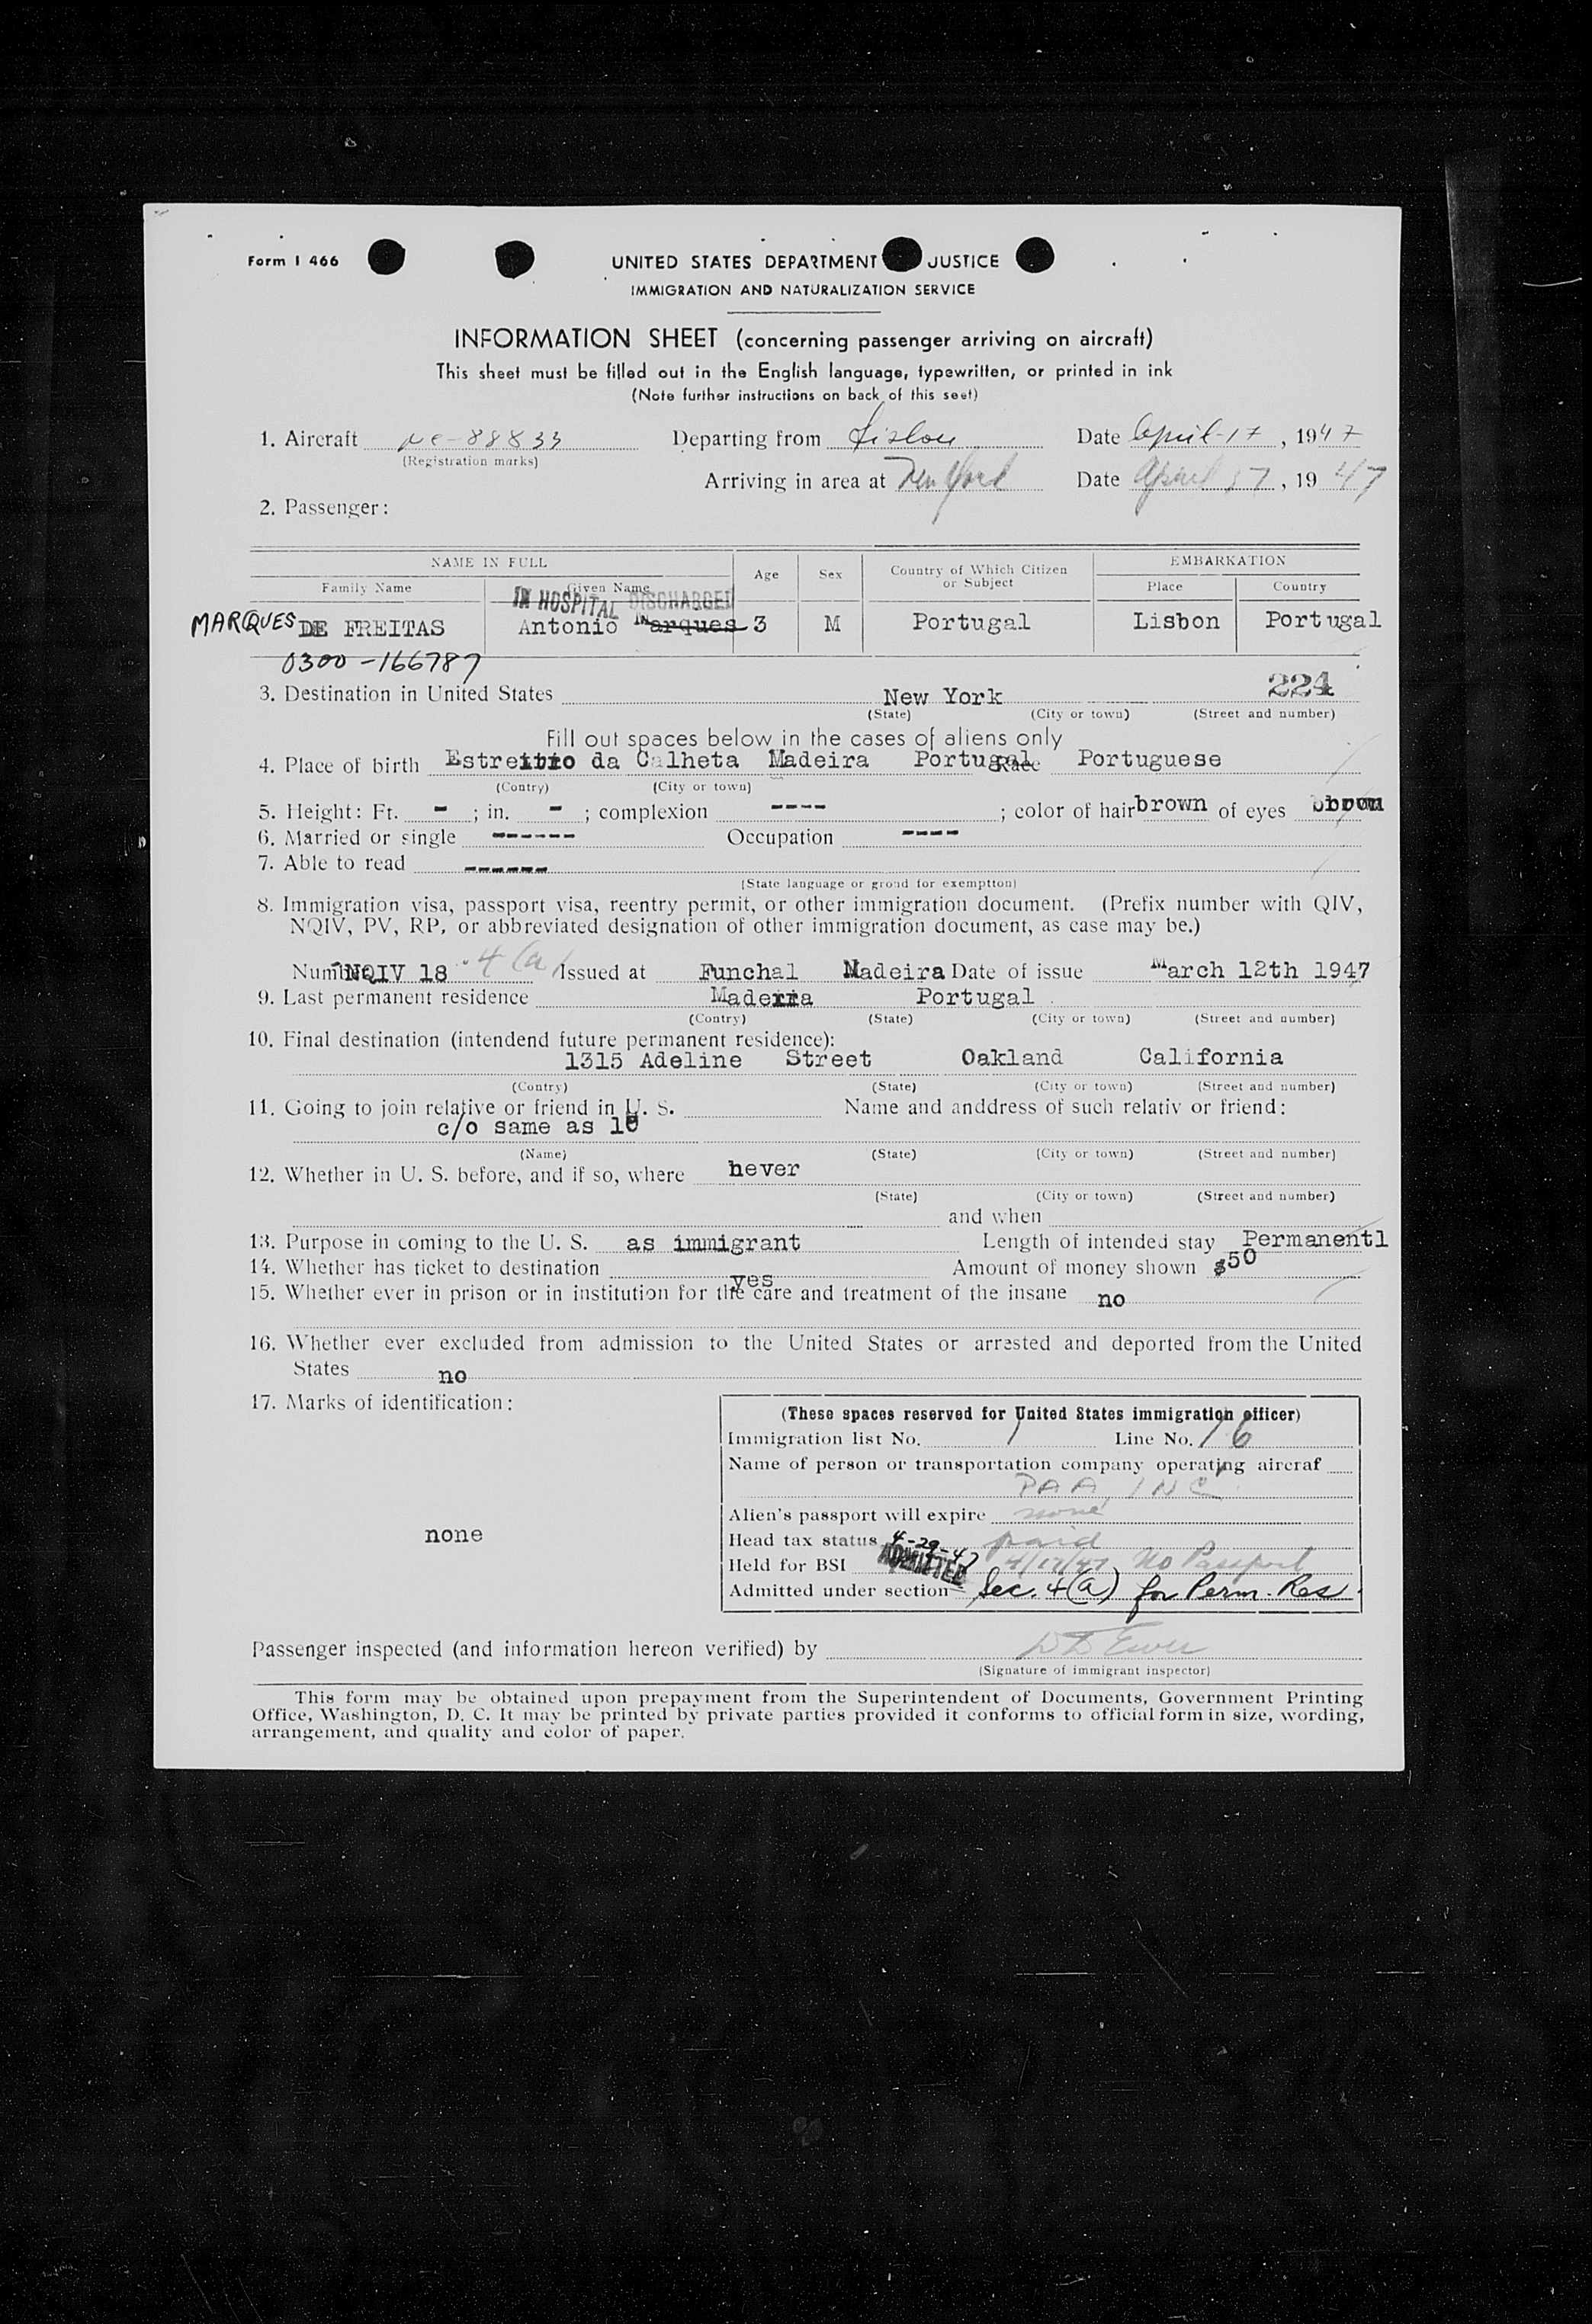 Form I 466
UNITED STATES DEPARTMENT JUSTICE
IMMIGRATION AND NATURALIZATION SERVICE
INFORMATION SHEET (concerning passenger arriving on aircraft)
This sheet must be filled out in the English language, typewritten, or printed in ink
(Note further instructions on back of this seet)
1. Aircraft NC-88833 Departing from Lisbon Date April 17, 1947
(Registration marks)
Arriving in area at New York Date April 17, 1947
2. Passenger:
NAME IN FULL Age Sex Country of Which Citizen or Subject EMBARKATION
Family Name Given Name Place Country
IN HOSPITAL DISCHARGED
MARQUES DE FREITAS Antonio Marques 3 M Portugal Lisbon Portugal
0300-166787
3. Destination in United States New York 224
(State) (City or town) (Street and number)
Fill out spaces below in the cases of aliens only
4. Place of birth Estreitro da Calheta Madeira Portugal Race Portuguese
(Contry) (City or town)
5. Height: Ft. - ; in. - ; complexion ---- ; color of hair brown of eyes brown
6. Married or single ------ Occupation ----
7. Able to read ------
(State language or grond for exemptton)
8. Immigration visa, passport visa, reentry permit, or other immigration document. (Prefix number with QIV,
NQIV, PV, RP, or abbreviated designation of other immigration document, as case may be.)
Number NQIV 18 4(a) Issued at Funchal Madeira Date of issue March 12th 1947
9. Last permanent residence Madeira Portugal
(Contry) (State) (City or town) (Street and number)
10. Final destination (intendend future permanent residence):
1315 Adeline Street Oakland California
(Contry) (State) (City or town) (Street and number)
11. Going to join relative or friend in U. S. Name and anddress of such relativ or friend:
c/o same as 10
(Name) (State) (City or town) (Street and number)
12. Whether in U. S. before, and if so, where never
(State) (City or town) (Street and number)
and when
13. Purpose in coming to the U. S. as immigrant Length of intended stay Permanentl
14. Whether has ticket to destination yes Amount of money shown $50
15. Whether ever in prison or in institution for the care and treatment of the insane no
16. Whether ever excluded from admission to the United States or arrested and deported from the United
States no
17. Marks of identification:
none
(These spaces reserved for United States immigration officer)
Immigration list No. 1 Line No. 16
Name of person or transportation company operating aircraf
PAA INC
Alien's passport will expire none
Head tax status 4-29-47 paid
Held for BSI ADMITTED 4/17/47 No Passport
Admitted under section Sec. 4(a) for Perm. Res.
Passenger inspected (and information hereon verified) by
(Signature of immigrant inspector)
This form may be obtained upon prepayment from the Superintendent of Documents, Government Printing
Office, Washington, D. C. It may be printed by private parties provided it conforms to official form in size, wording,
arrangement, and quality and color of paper.